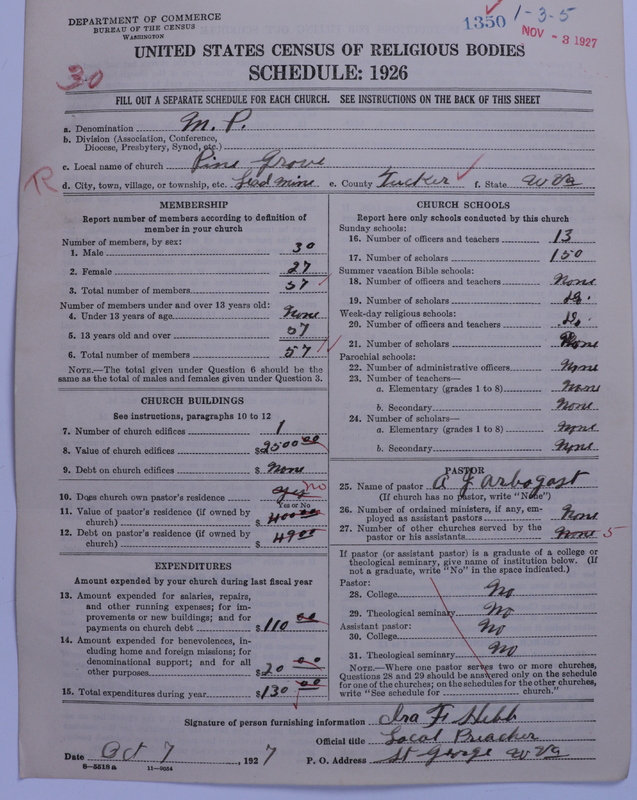 DEPARTMENT OF COMMERCE
BUREAU OF THE CENSUS
WASHINGTON
1350
1-3-5
NOV - 3 1927
UNITED STATES CENSUS OF RELIGIOUS BODIES
SCHEDULE: 1926
30
FILL OUT A SEPARATE SCHEDULE FOR EACH CHURCH. SEE INSTRUCTIONS ON THE BACK OF THIS SHEET
a. Denomination M. P.
b. Division (Association, Conference,
Diocese, Presbytery, Synod, etc.)
c. Local name of church Pine Grove
R
d. City, town, village, or township, etc. Lead mine e. County Tucker f. State W Va
MEMBERSHIP
Report number of members according to definition of
member in your church
Number of members, by sex:
1. Male 30
2. Female 27
3. Total number of members 57
Number of members under and over 13 years old:
4. Under 13 years of age None
5. 13 years old and over 57
6. Total number of members 57
NOTE.—The total given under Question 6 should be
same as the total of males and females given under Question 3.
CHURCH BUILDINGS
See instructions, paragraphs 10 to 12
7. Number of church edifices 1
8. Value of church edifices $2500 00
9. Debt on church edifices $ None
10. Does church own pastor's residence yes no
Yes or No
11. Value of pastor's residence (if owned by
church) $ 400 00
12. Debt on pastor's residence (if owned by
church) $ 49 00
EXPENDITURES
Amount expended by your church during last fiscal year
13. Amount expended for salaries, repairs,
and other running expenses; for im-
provements or new buildings; and for
payments on church debt $ 110 00
14. Amount expended for benevolences, in-
cluding home and foreign missions; for
denominational support; and for all
other purposes $ 20 00
15. Total expenditures during year $ 130 00
CHURCH SCHOOLS
Report here only schools conducted by this church
Sunday schools:
16. Number of officers and teachers 13
17. Number of scholars 150
Summer vacation Bible schools:
18. Number of officers and teachers None
19. Number of scholars
Week-day religious schools:
20. Number of officers and teachers
21. Number of scholars None
Parochial schools:
22. Number of administrative officers None
23. Number of teachers—
a. Elementary (grades 1 to 8) None
b. Secondary None
24. Number of scholars—
a. Elementary (grades 1 to 8) None
b. Secondary None
PASTOR
25. Name of pastor A J Arbogast
(If church has no pastor, write "None")
26. Number of ordained ministers, if any, em-
ployed as assistant pastors None
27. Number of other churches served by the
pastor or his assistants None 5
If pastor (or assistant pastor) is a graduate of a college or
theological seminary, give name of institution below. (If
not a graduate, write "No" in the space indicated.)
Pastor:
28. College No
29. Theological seminary No
Assistant pastor:
30. College No
31. Theological seminary No
NOTE.—Where one pastor serves two or more churches,
Questions 28 and 29 should be answered only on the schedule
for one of the churches; on the schedules for the other churches,
write "See schedule for church."
Signature of person furnishing information Ira F. Hebb
Official title Local Preacher
Date Oct 7, 1927 P. O. Address St George W Va
8—5518a 11—9054